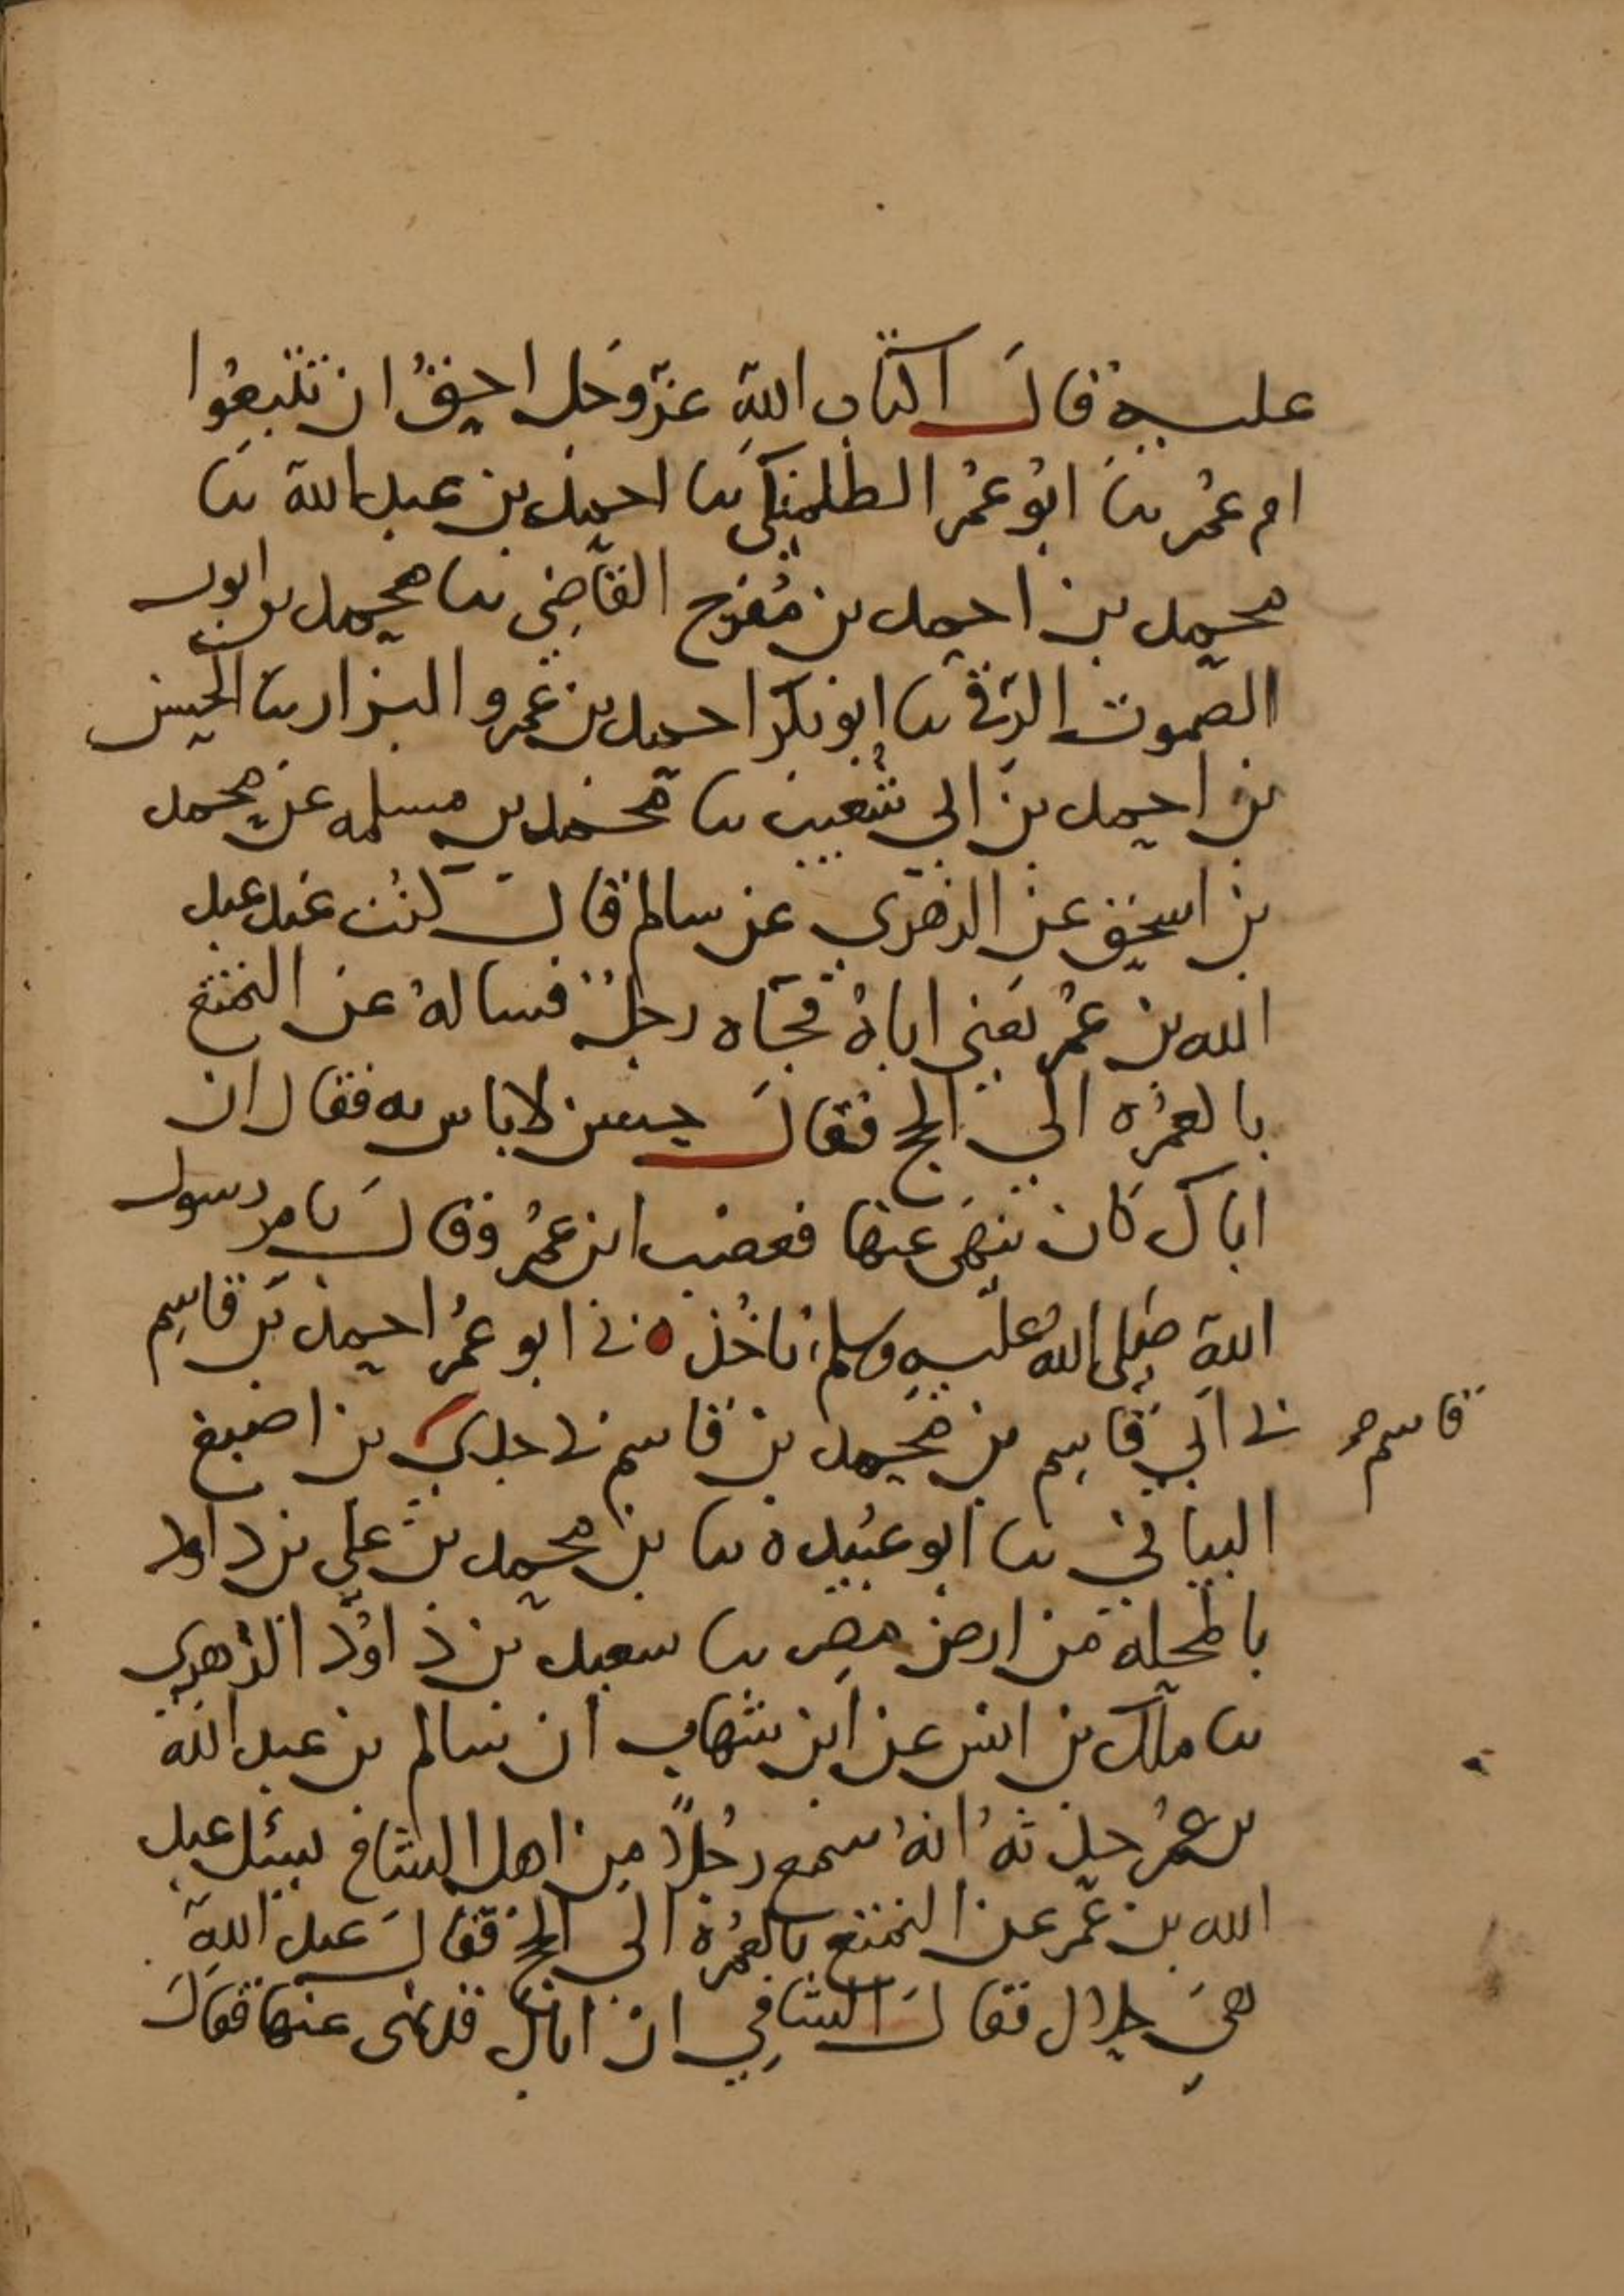 عليه قال اكتاب الله عز وجل احق ان تتبعوا
ام عمر نا ابو عمر الطلمنكي نا احمد بن عبد الله نا
محمد بن احمد بن مفرج القاضي نا محمد بن ايوب
الصموت الرقي نا ابو بكر احمد بن عمرو البزار نا الحسن
بن احمد بن ابي شعيب نا محمد بن مسلمه عن محمد
بن اسحق عن الزهري عن سالم قال كنت عند عبد
الله بن عمر يعني اباه فجاه رجل فساله عن التمتع
بالعمره الي الحج فقال حسن لا باس به فقال ان
اباك كان ينهى عنها فغضب ابن عمر وقال بامر رسول
الله صلى الله عليه وسلم ناخذ ه ني ابو عمر احمد بن قاسم
ني ابي قاسم بن محمد بن قاسم ني جدي بن اصبغ
قاسم صح
البياني نا ابو عبيده نا بن محمد بن علي بن داود
بالمحله من ارض مصر نا سعيد بن داود الزهري
نا ملك بن انس عن ابن شهاب ان سالم بن عبد الله
بن عمر حدثه انه سمع رجلا من اهل الشام يسئل عبد
الله بن عمر عن التمتع بالعمره الي الحج فقال عبد الله
هي حلال فقال الشامي ان اباك قد نهى عنها فقال